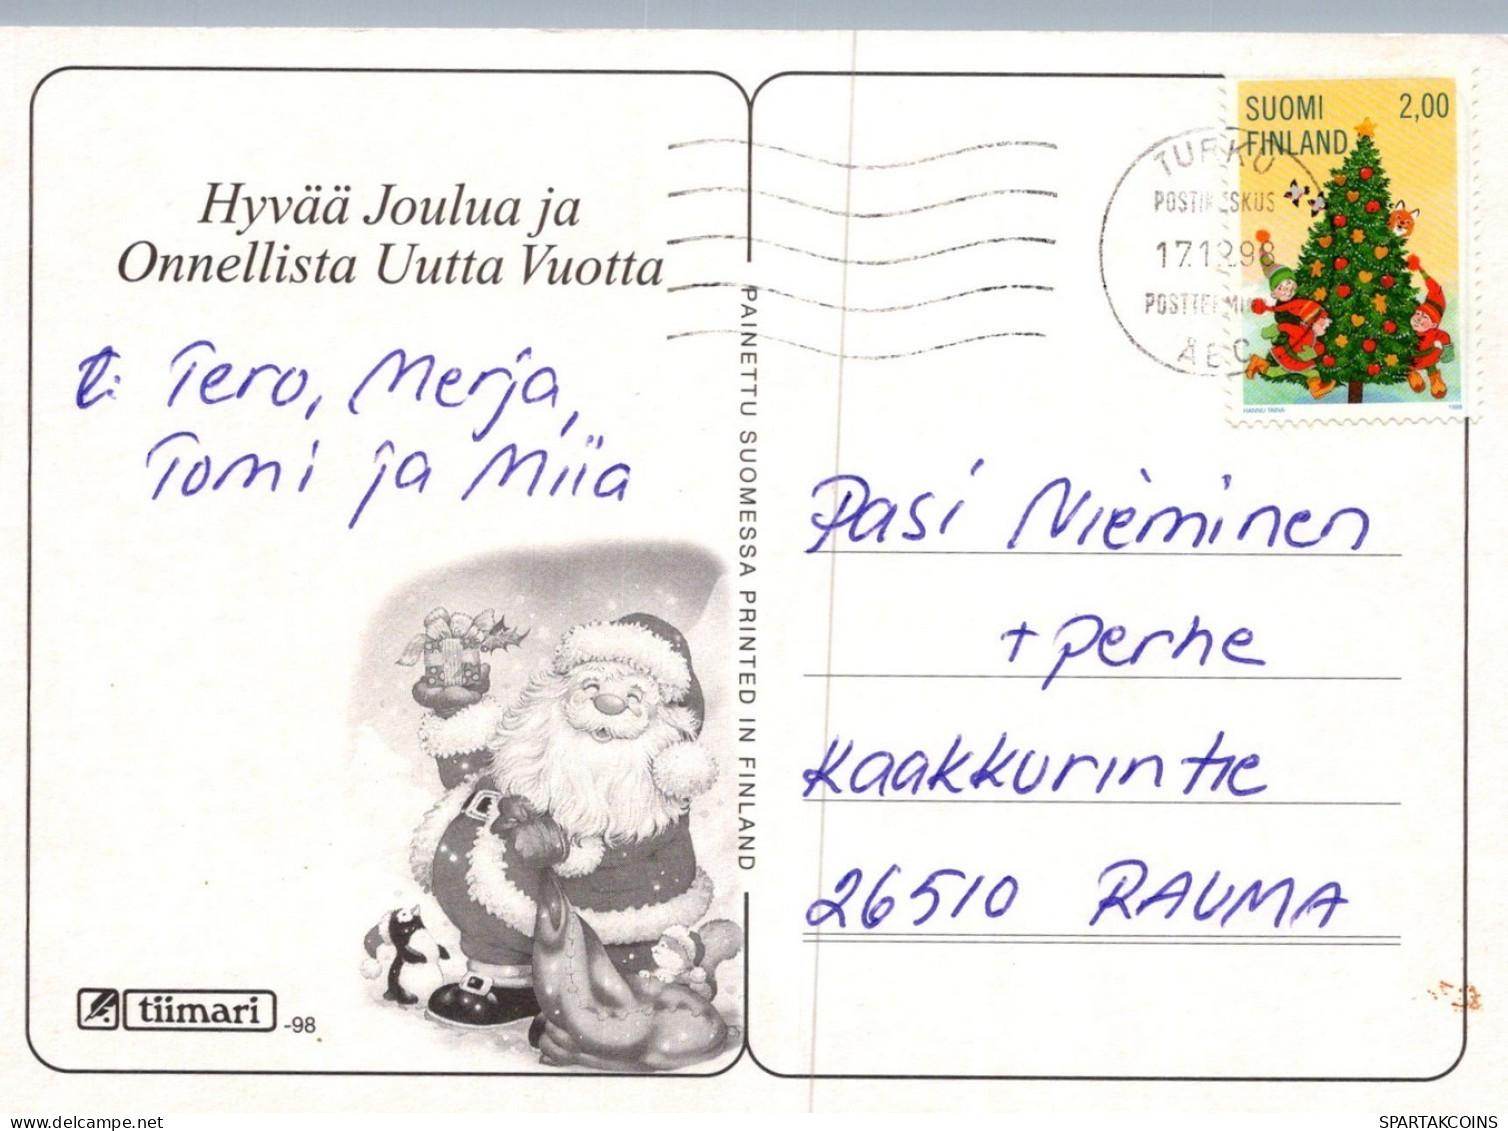 Hyvää Joulua ja
Onnellista Uutta Vuotta
t: Tero, Merja,
Tomi ja Miia
tiimari -98
PAINETTU SUOMESSA PRINTED IN FINLAND
SUOMI 2,00
FINLAND
HANNU TAINA 1998
TURKU
POSTIKESKUS
17.12.98
POSTTERMINAL
ÅBO
Pasi Nieminen
+ perhe
Kaakkurintie
26510 RAUMA
SPARTAKCOINS